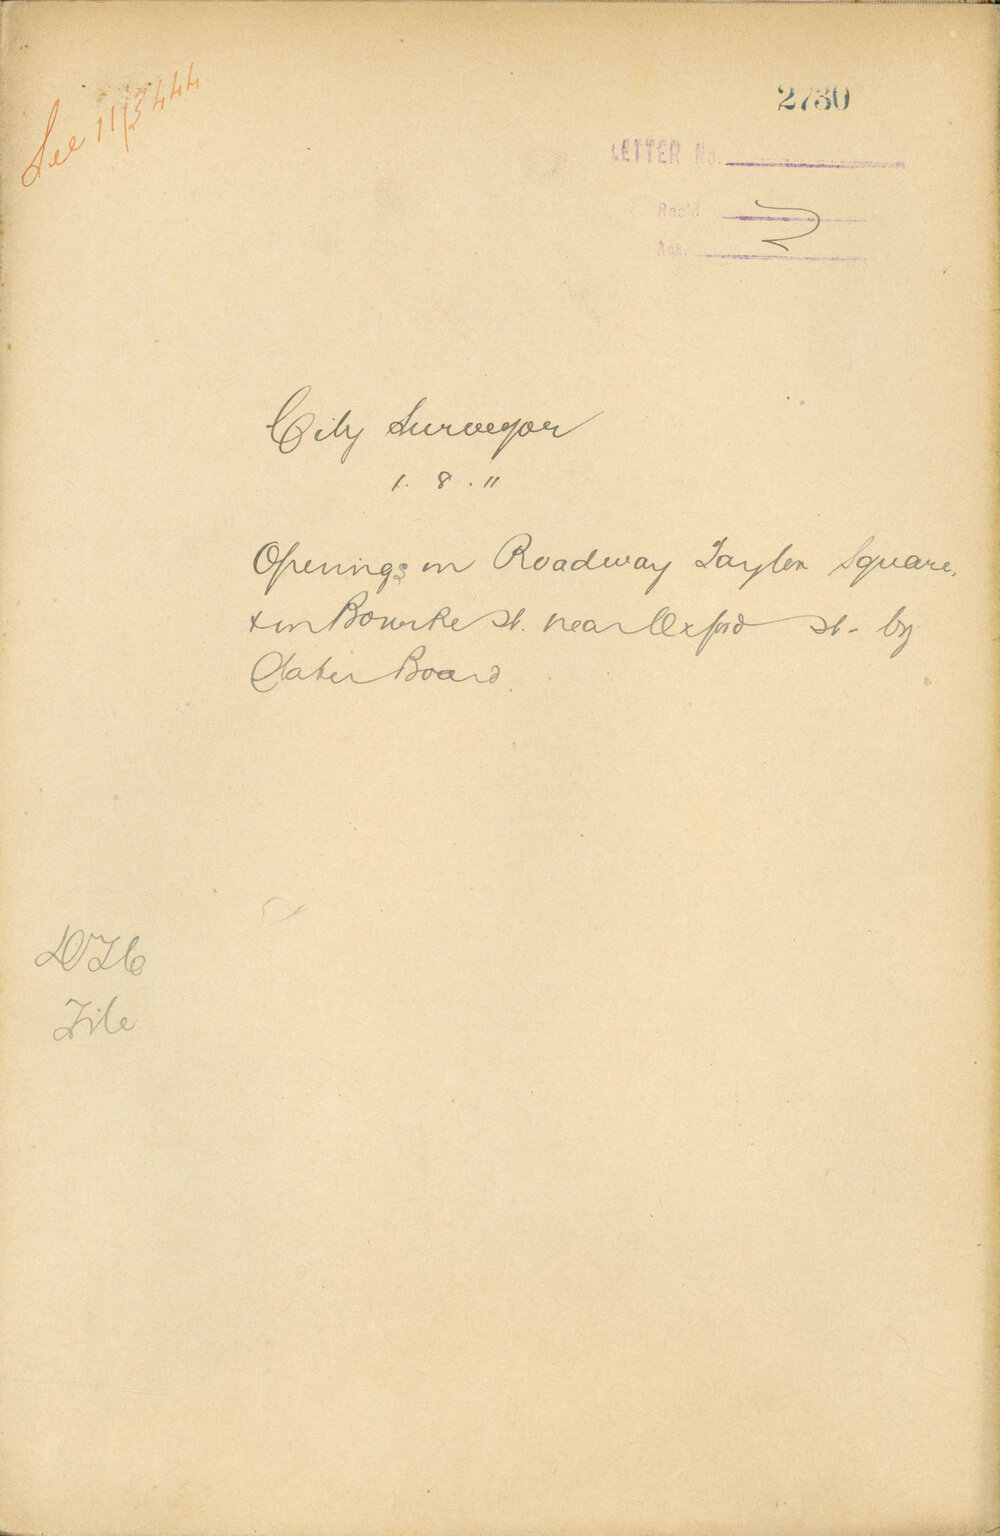 See 11/3444
2730
LETTER No.
Rec'd
Ack.
City Surveyor
1. 8. 11
Openings in Roadway Taylor Square.
+ in Bourke St. near Oxford St. by
Water Board.
File